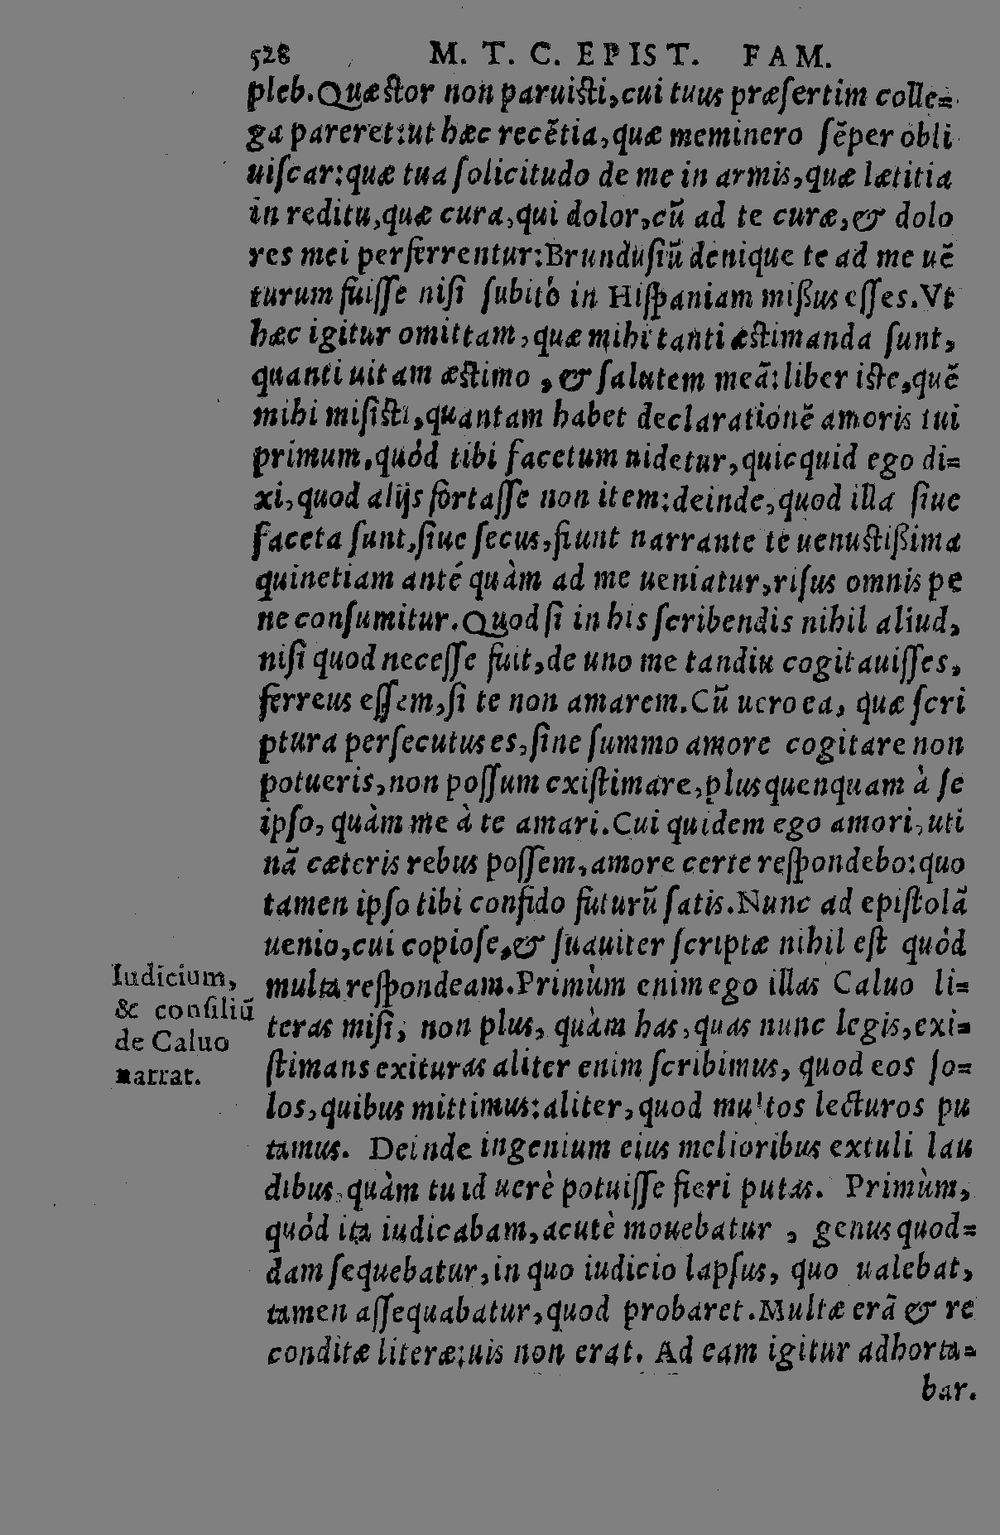 528 M. T. C. EPIST. FAM.
pleb. Quæstor non paruisti, cui tuus præsertim colle=
ga pareret: ut hæc recẽtia, quæ meminero sẽper obli
uiscar: quæ tua solicitudo de me in armis, quæ lætitia
in reditu, quæ cura, qui dolor, cũ ad te curæ, & dolo
res mei perferrentur: Brundusiũ denique te ad me uẽ
turum fuisse nisi subitò in Hispaniam missus esses. Vt
hæc igitur omittam, quæ mihi tanti æstimanda sunt,
quanti uitam æstimo, & salutem meã: liber iste, quẽ
mihi misisti, quantam habet declarationẽ amoris tui
primum, quòd tibi facetum uidetur, quicquid ego di=
xi, quod alijs fortasse non item: deinde, quod illa siue
faceta sunt, siue secus, fiunt narrante te uenustissima
quinetiam anté quàm ad me ueniatur, risus omnis pe
ne consumitur. Quod si in his scribendis nihil aliud,
nisi quod necesse fuit, de uno me tandiu cogitauisses,
ferreus essem, si te non amarem. Cũ uero ea, quæ scri
ptura persecutus es, sine summo amore cogitare non
potueris, non possum existimare, plus quenquam à se
ipso, quàm me à te amari. Cui quidem ego amori, uti
nã cæteris rebus possem, amore certe respondebo: quo
tamen ipso tibi confido futurũ satis. Nunc ad epistolã
uenio, cui copiose, & suauiter scriptæ nihil est quòd
multa respondeam. Primùm enim ego illas Caluo li=
teras misi, non plus, quàm has, quas nunc legis, exi=
stimans exituras aliter enim scribimus, quod eos so=
los, quibus mittimus: aliter, quod multos lecturos pu
tamus. Deinde ingenium eius melioribus extuli lau
dibus, quàm tu id uerè potuisse fieri putas. Primùm,
quòd ita iudicabam, acutè mouebatur, genus quod=
dam sequebatur, in quo iudicio lapsus, quo ualebat,
tamen assequabatur, quod probaret. Multæ erã & re
conditæ literæ: uis non erat. Ad eam igitur adhorta=
bar.
Iudicium,
& consiliũ
de Caluo
narrat.